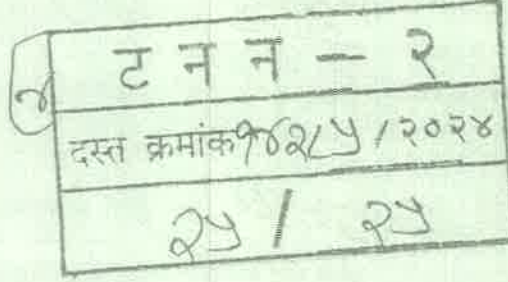 ट न न - २
दस्त क्रमांक १४२८५ / २०२४
२५ / २५